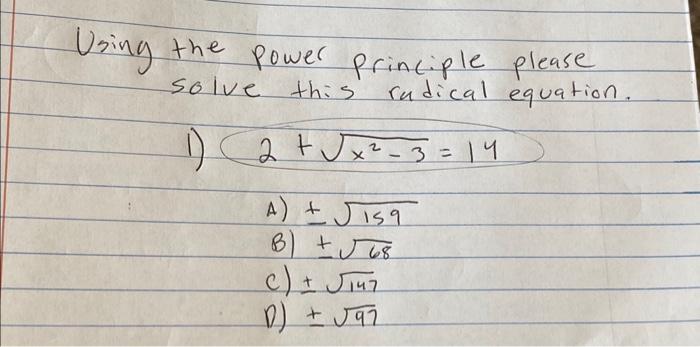 Using the power principle please
solve this radical equation.
1) 2 + √x² - 3 = 14
A) ± √159
B) ± √68
C) ± √147
D) ± √97